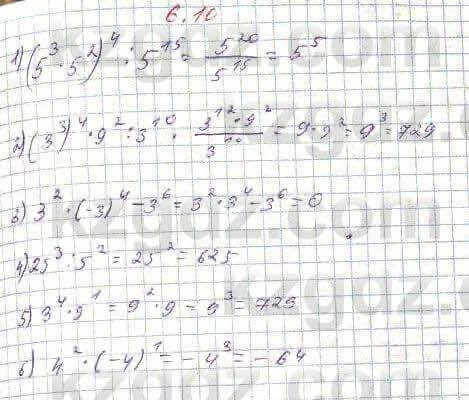 6.10
1) (5³ · 5²)⁴ : 5¹⁵ = 5²⁰ / 5¹⁵ = 5⁵
2) (3³)⁴ · 9² : 3¹⁰ · 3¹² · 9² / 3¹⁰ = 9 · 9² = 9³ = 729
3) 3² · (-3)⁴ - 3⁶ = 3² · 3⁴ - 3⁶ = 0
4) 25³ : 5² = 25² = 625
5) 3⁴ · 9¹ = 9² · 9 = 9³ = 729
6) 4² · (-4)¹ = -4³ = -64